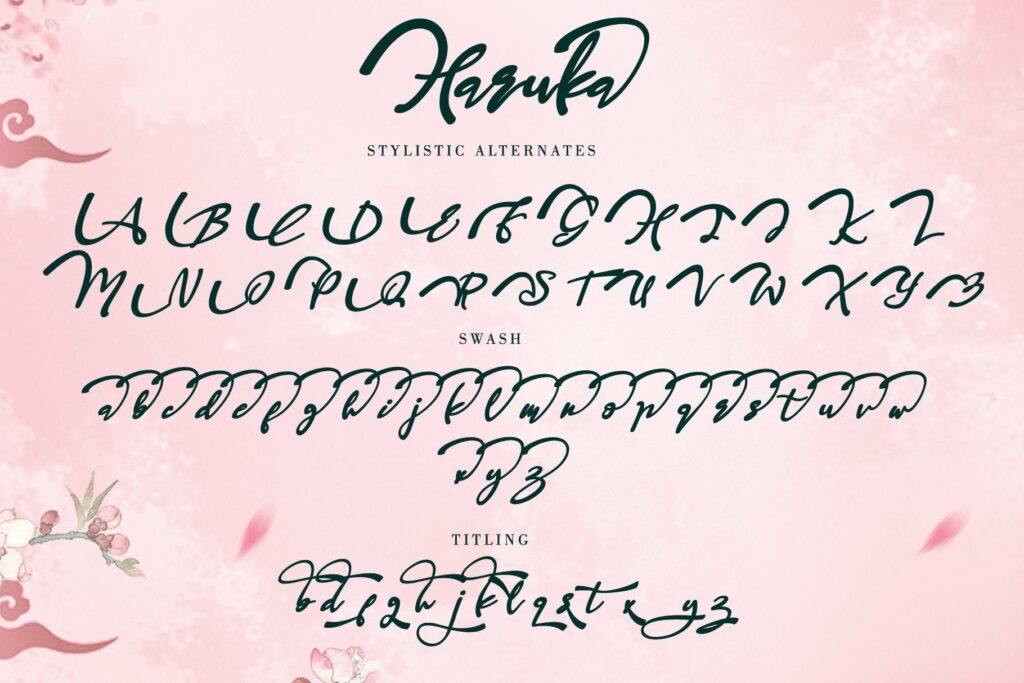 Haruka
STYLISTIC ALTERNATES
A B C D E F G H I J K L
M N O P Q R S T U V W X Y Z
SWASH
a b c d e f g h i j k l m n o p q r s t u v w
x y z
TITLING
b d f g h j k l q r t x y z